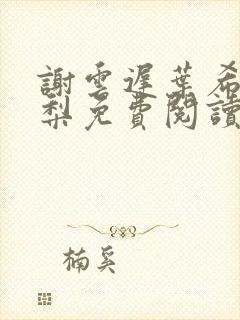 謝雲遲葉希
梨免費閱讀
楠奚